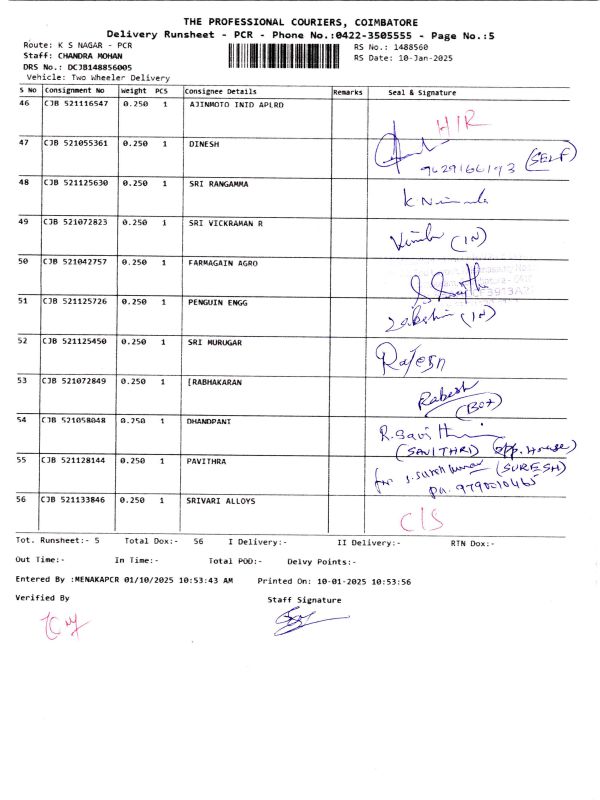 THE PROFESSIONAL COURIERS, COIMBATORE
Delivery Runsheet - PCR - Phone No.:0422-3505555 - Page No.:5
Route: K S NAGAR - PCR
RS No.: 1488560
Staff: CHANDRA MOHAN
RS Date: 10-Jan-2025
DRS No.: DCJB148856005
Vehicle: Two Wheeler Delivery
S No Consignment No Weight PCS Consignee Details Remarks Seal & Signature
46 CJB 521116547 0.250 1 AJINMOTO INID APLRD
H/R
47 CJB 521055361 0.250 1 DINESH
9629166193 (SELF)
48 CJB 521125630 0.250 1 SRI RANGAMMA
49 CJB 521072823 0.250 1 SRI VICKRAMAN R
(IN)
50 CJB 521042757 0.250 1 FARMAGAIN AGRO
51 CJB 521125726 0.250 1 PENGUIN ENGG
(IN)
52 CJB 521125450 0.250 1 SRI MURUGAR
Rajesh
53 CJB 521072849 0.250 1 [RABHAKARAN
(BOX)
54 CJB 521058048 0.250 1 DHANDPANI
R.Savithri
(SAVITHRI) (opp. House)
55 CJB 521128144 0.250 1 PAVITHRA
for S.Suresh kumar (SURESH)
pn. 9790010465
56 CJB 521133846 0.250 1 SRIVARI ALLOYS
C/S
Tot. Runsheet:- 5 Total Dox:- 56 I Delivery:- II Delivery:- RTN Dox:-
Out Time:- In Time:- Total POD:- Delvy Points:-
Entered By :MENAKAPCR 01/10/2025 10:53:43 AM Printed On: 10-01-2025 10:53:56
Verified By Staff Signature